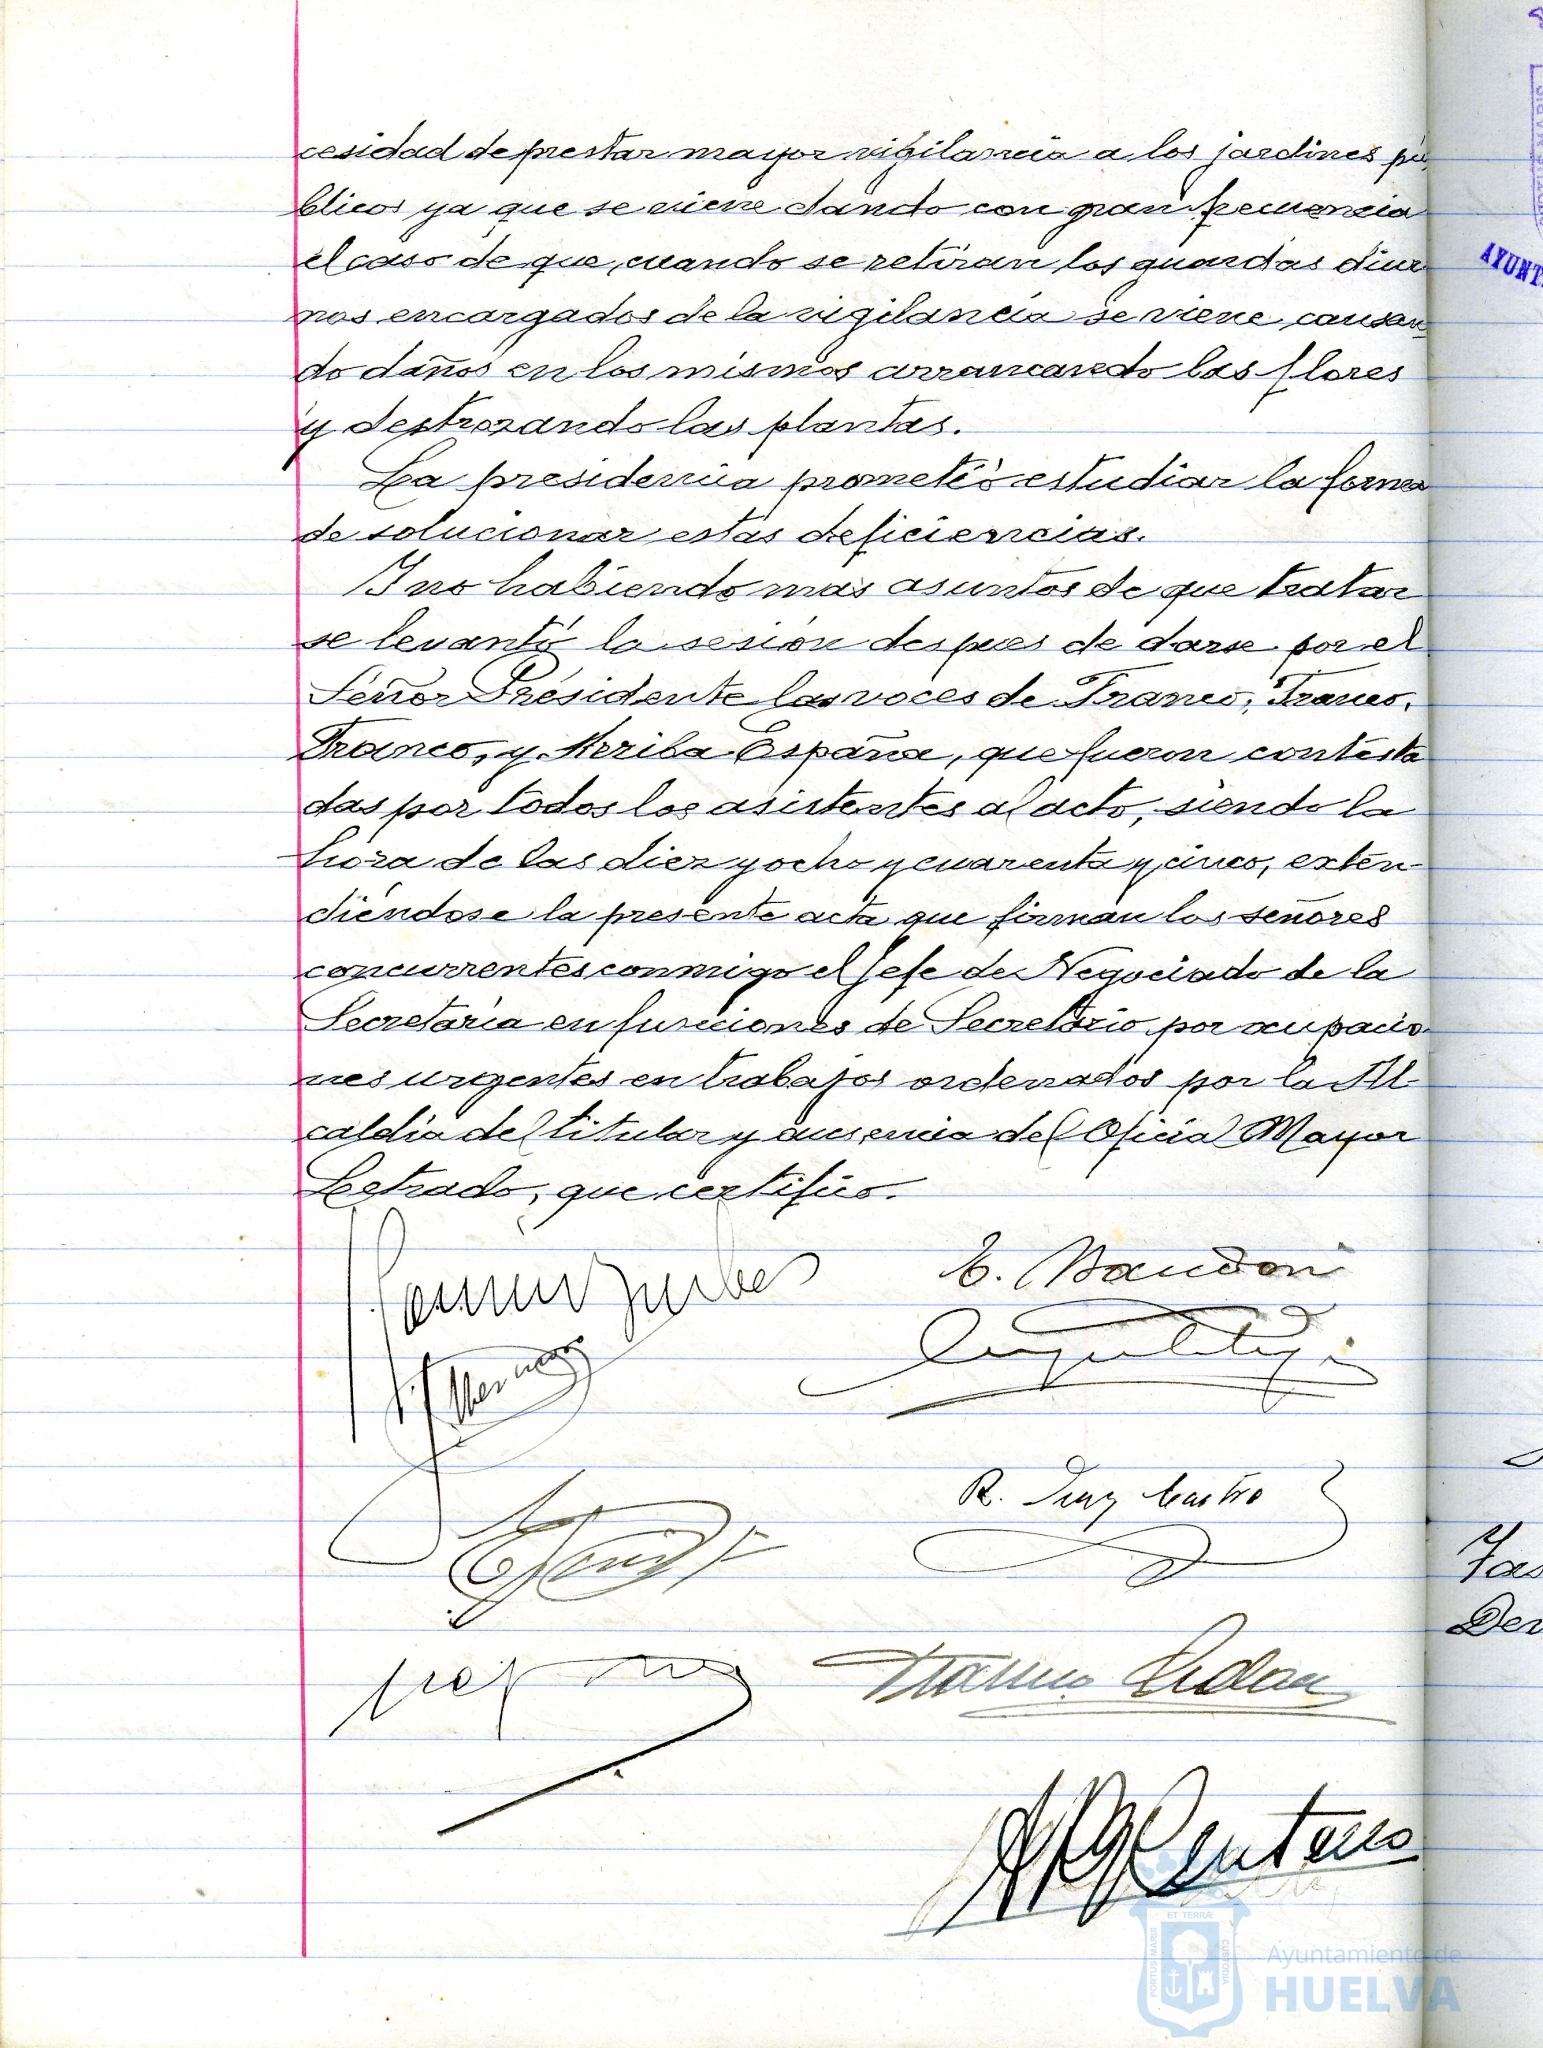 cesidad de prestar mayor vigilancia a los jardines pú
blicos ya que se viene dando con gran frecuencia
el caso de que, cuando se retiran los guardas diur
nos encargados de la vigilancia se viene causan
do daños en los mismos arrancando las flores
y destrozando las plantas.
La presidencia prometió estudiar la forma
de solucionar estas deficiencias.
Y no habiendo mas asuntos de que tratar
se levantó la sesión despues de darse por el
Señor Presidente las voces de Franco, Franco,
Franco, y Arriba España, que fueron contesta
das por todos los asistentes al acto, siendo la
hora de las diez y ocho y cuarenta y cinco, exten-
diéndose la presente acta que firman los señores
concurrentes conmigo el Jefe de Negociado de la
Secretaría en funciones de Secretario por ocupacio
nes urgentes en trabajos ordenados por la Al-
caldía del titular y ausencia del Oficial Mayor
Letrado, que certifico.
R. Díaz Castro
Centeno
AYUNT
ET TERRÆ
PORTUS MARIS
CUSTODIA
Ayuntamiento de
HUELVA